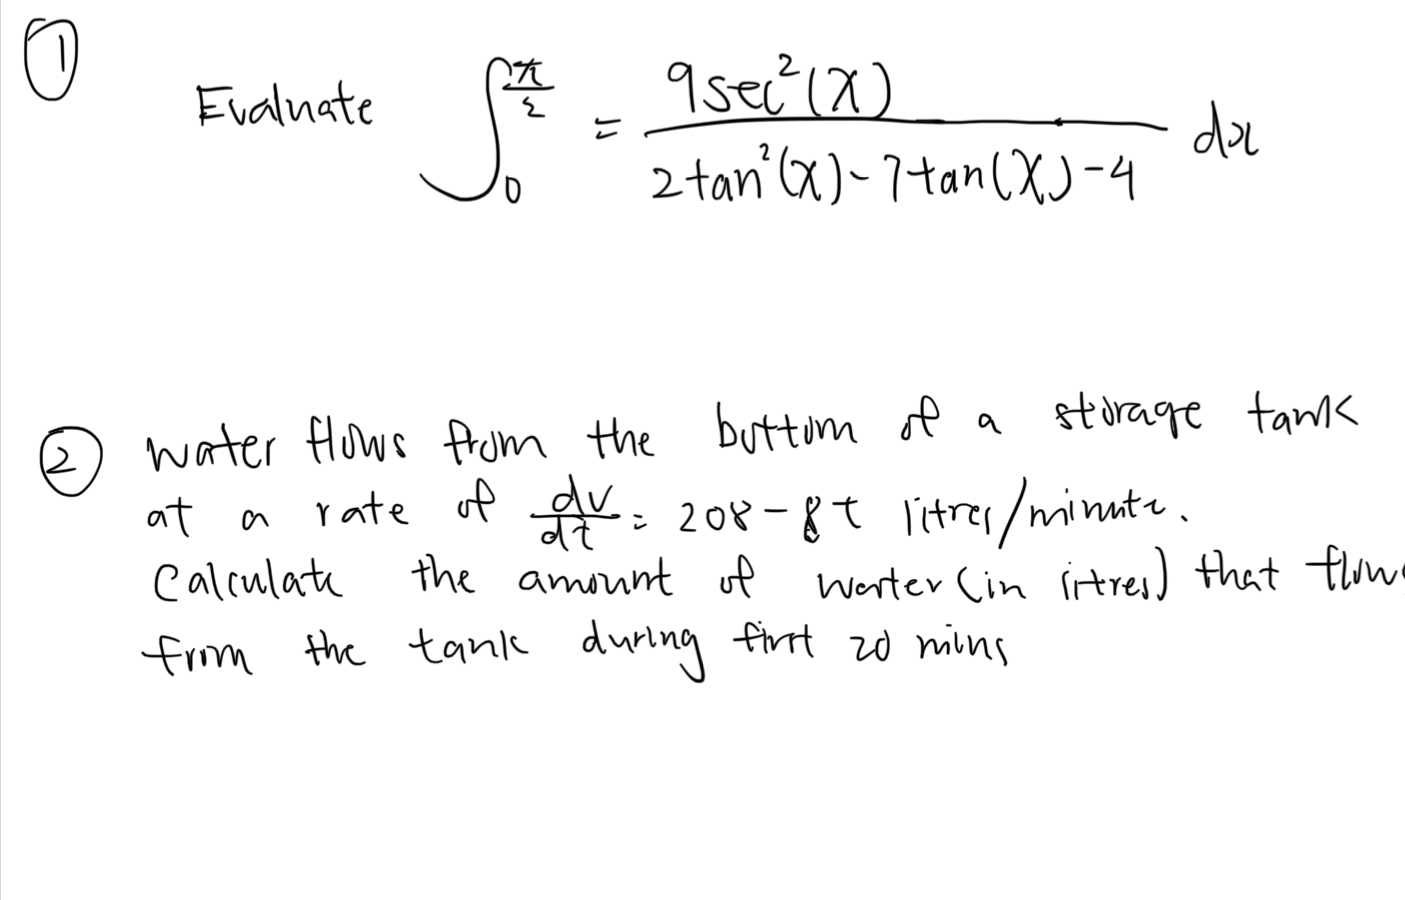 ①
Evaluate ∫₀^(π/2) = 9sec²(x) / (2tan²(x) - 7tan(x) - 4) dx
② water flows from the bottom of a storage tank
at a rate of dv/dt = 208 - 8t litres/minute.
Calculate the amount of water (in litres) that flow
from the tank during first 20 mins